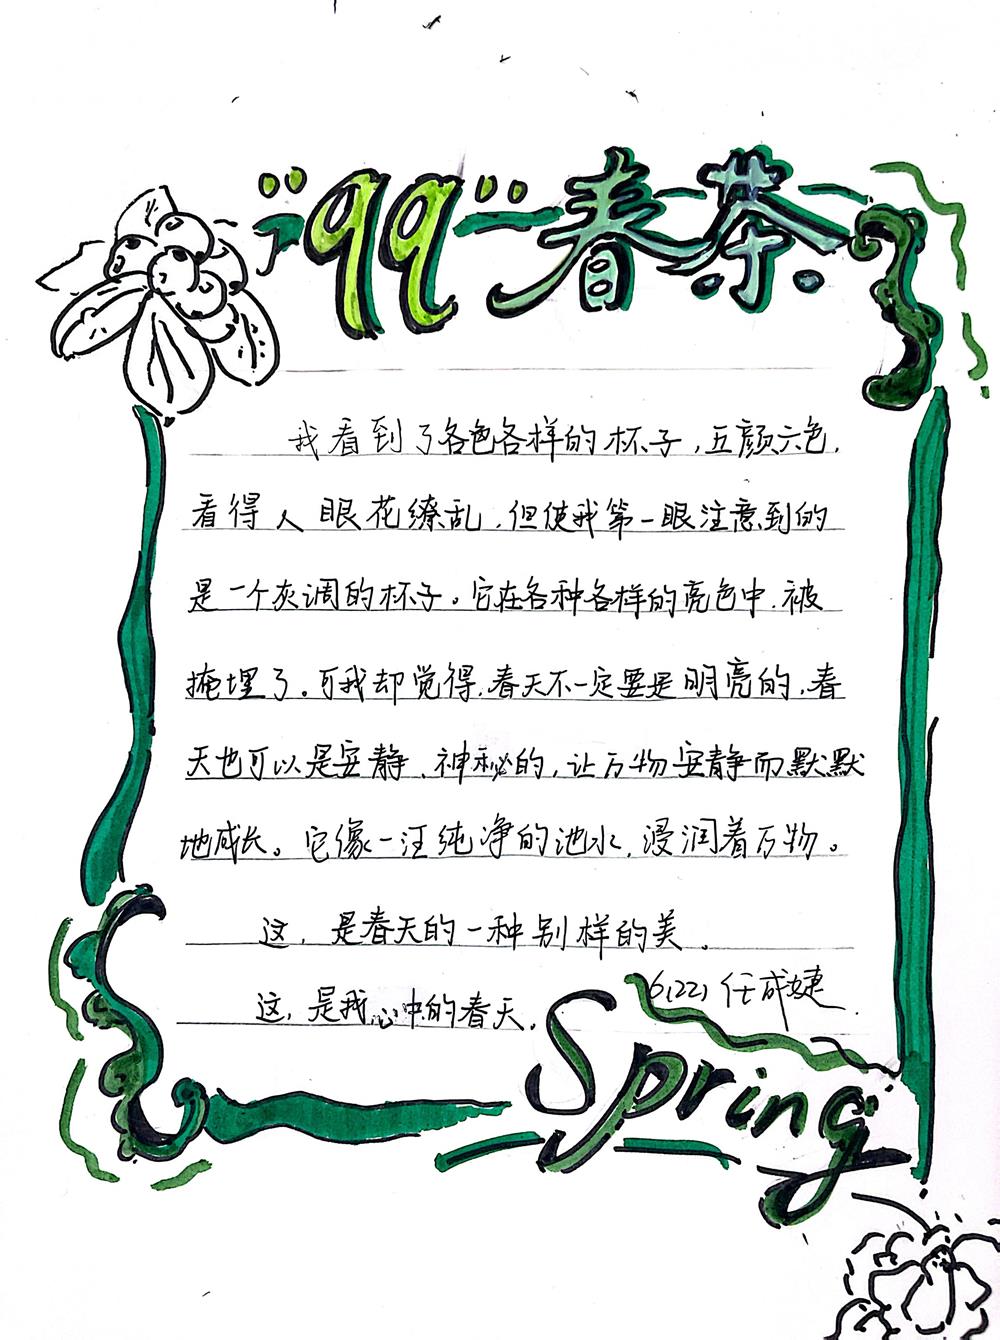 "99" 春茶
我看到了各色各样的杯子，五颜六色，
看得人眼花缭乱，但使我第一眼注意到的
是一个灰调的杯子。它在各种各样的亮色中，被
掩埋了。可我却觉得，春天不一定要是明亮的，春
天也可以是安静、神秘的，让万物安静而默默
地成长。它像一汪纯净的池水，浸润着万物。
这，是春天的一种别样的美。
这，是我心中的春天。
6(22) 任成婕
Spring